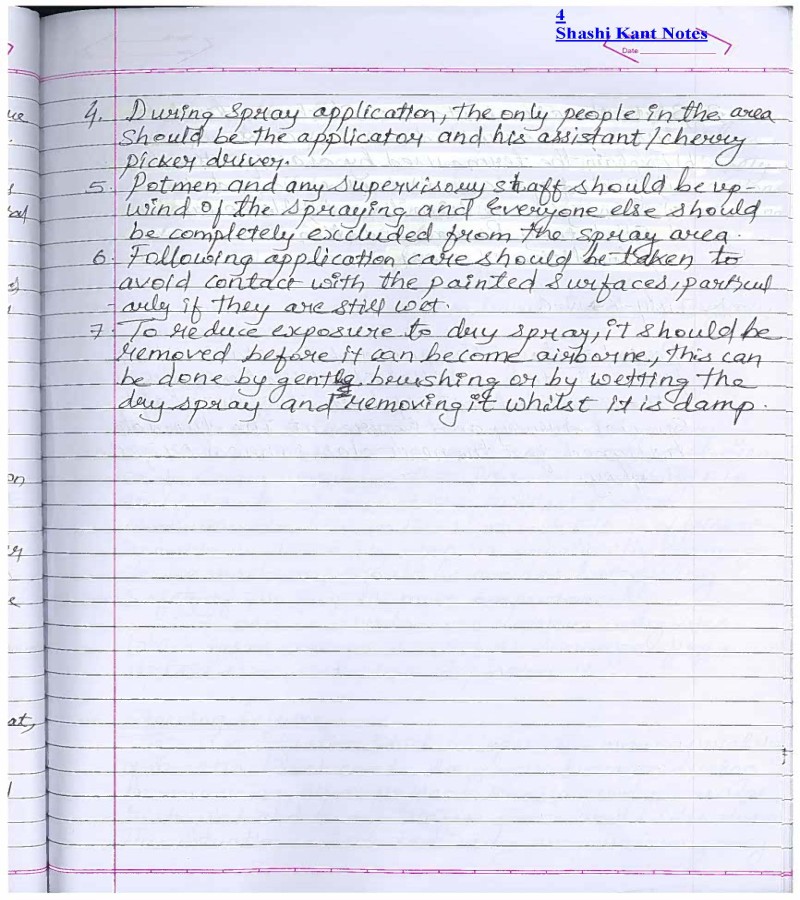 4
Shashi Kant Notes
Date
4. During spray application, the only people in the area
should be the applicator and his assistant/cherry
picker driver.
5. Potmen and any supervisory staff should be up-
wind of the spraying and everyone else should
be completely excluded from the spray area.
6. Following application care should be taken to
avoid contact with the painted surfaces, particul
arly if they are still wet.
7. To reduce exposure to dry spray, it should be
removed before it can become airborne, this can
be done by gently brushing or by wetting the
dry spray and removing it whilst it is damp.
at,